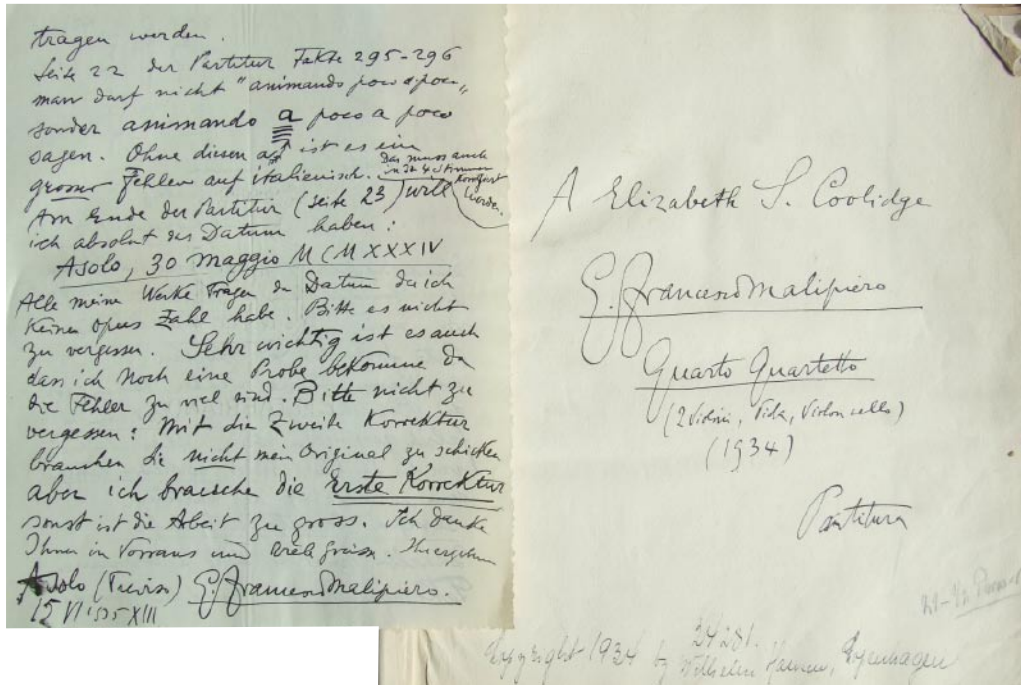 tragen werden.
Seite 22 der Partitur Takte 295-296
man darf nicht "animando poco a poco„
sonder animando a poco a poco
sagen. Ohne diesen a ist es ein
grosser Fehler auf italienisch. Das muss auch
in die 4 Stimmen korrigiert
werden.
Am Ende der Partitur (Seite 23) will
ich absolut das Datum haben:
Asolo, 30 Maggio MCMXXXIV
Alle meine Werke tragen das Datum da ich
keinen opus Zahl habe. Bitte es nicht
zu vergessen. Sehr wichtig ist es auch
dass ich noch eine Probe bekomme da
die Fehler zu viel sind. Bitte nicht zu
vergessen: Mit die Zweite Korrektur
brauchen Sie nicht mein Original zu schicken
aber ich brauche die Erste Korrektur
sonst ist die Arbeit zu gross. Ich danke
Ihnen in Vorraus und viele Grüsse. Ihr ergebener
Asolo (Treviso) G. Francesco Malipiero.
15 VI 1935 XIII
A Elizabeth S. Coolidge
G. Francesco Malipiero
Quarto Quartetto
(2 Violini, Viola, Violoncello)
(1934)
Partitura
34281.
Copyright 1934 by Wilhelm Hansen, Copenhagen